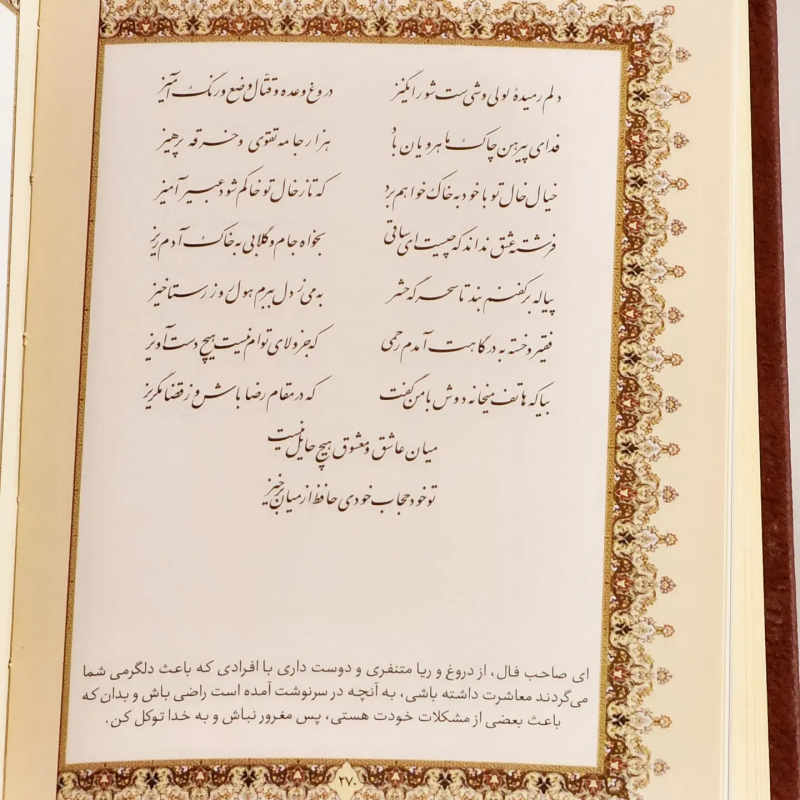 دلم رمیدهٔ لولی وشی‌ست شورانگیز دروغ وعده و قتّال وضع و رنگ آمیز
فدای پیرهن چاک ماهرویان باد هزار جامه تقوی و خرقه پرهیز
خیال خال تو با خود به خاک خواهم برد که تا ز خال تو خاکم شود عبیر آمیز
فرشته عشق نداند که چیست ای ساقی بخواه جام و گلابی به خاک آدم ریز
پیاله بر کفنم بند تا سحرگه حشر به می ز دل ببرم هول روز رستاخیز
فقیر و خسته به درگاهت آمدم رحمی که جز ولای توام نیست هیچ دست آویز
بیا که هاتف میخانه دوش با من گفت که در مقام رضا باش و ز قضا مگریز
میان عاشق و معشوق هیچ حایل نیست
تو خود حجاب خودی حافظ از میان برخیز
ای صاحب فال، از دروغ و ریا متنفری و دوست داری با افرادی که باعث دلگرمی شما
می‌گردند معاشرت داشته باشی، به آنچه در سرنوشت آمده است راضی باش و بدان که
باعث بعضی از مشکلات خودت هستی، پس مغرور نباش و به خدا توکل کن.